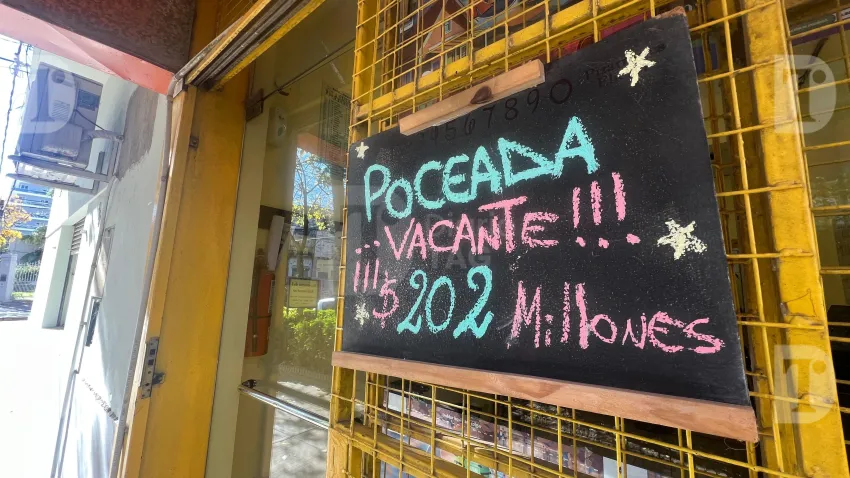 567890
POCEADA
¡¡VACANTE!!!
¡¡¡$202 Millones